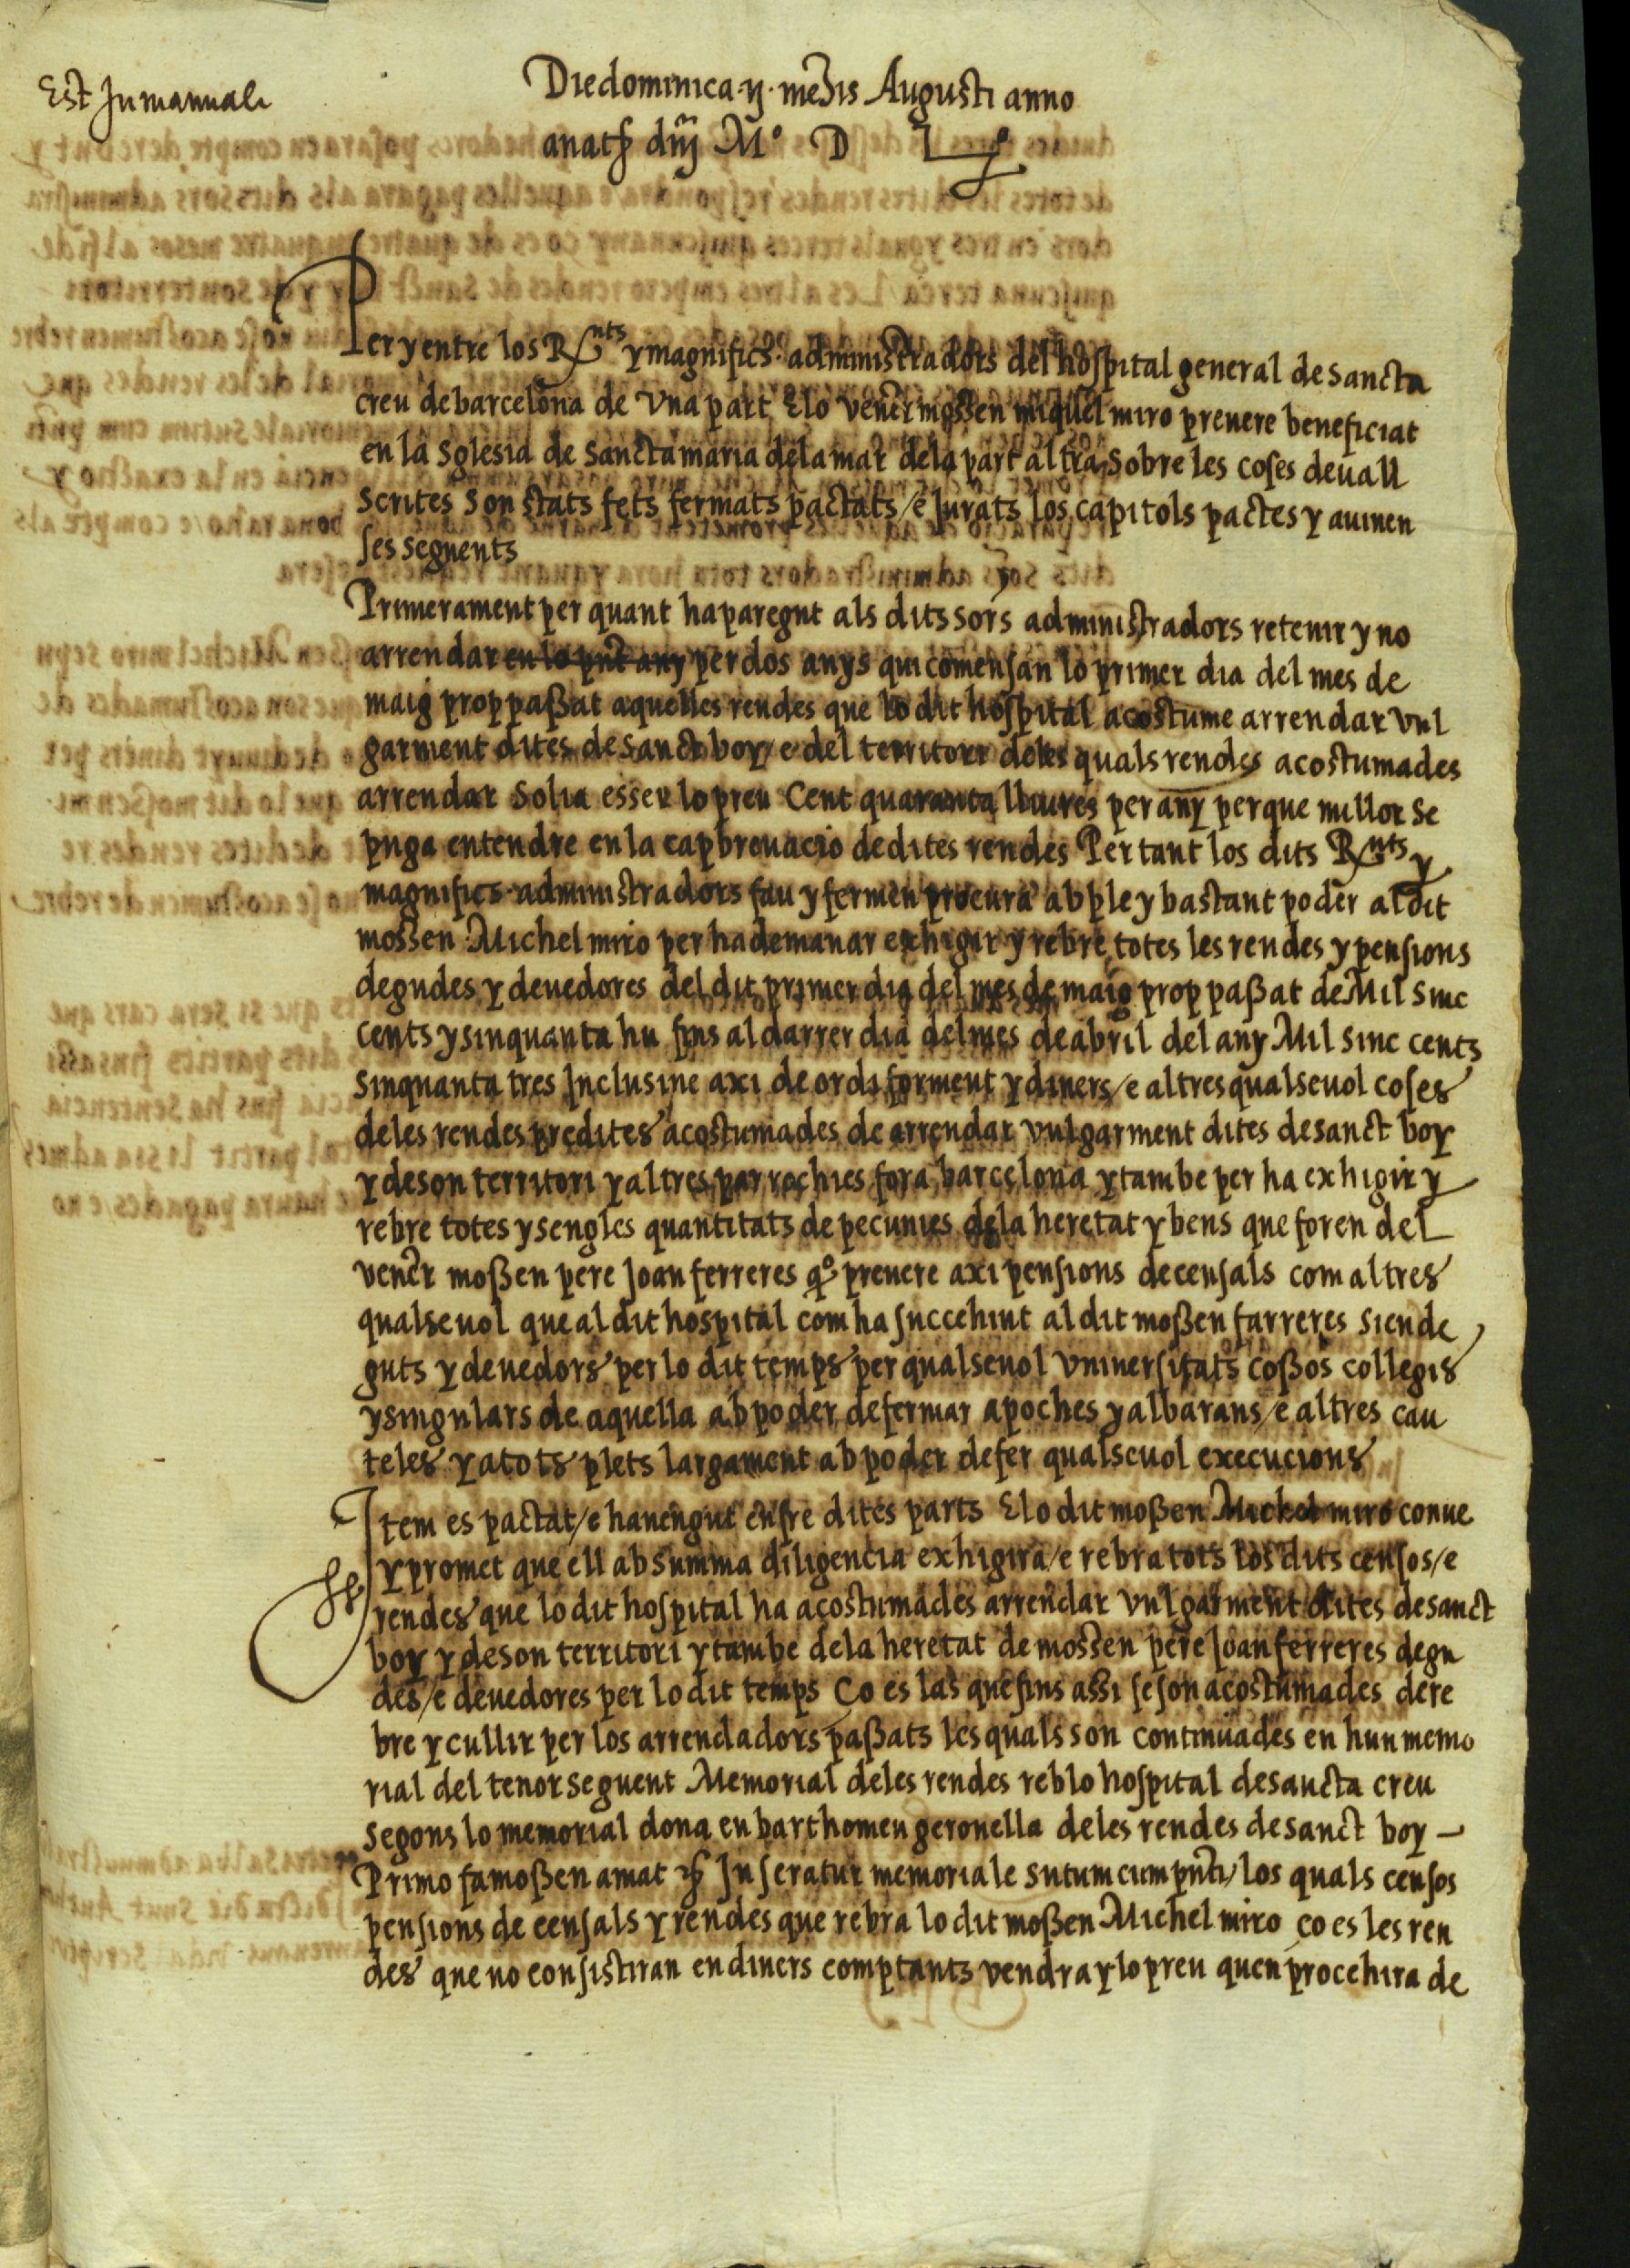 Est Jn manuali
Die dominica ij mensis Augusti anno
a natte dnj Mº D Ljº
Per y entre los Rnts y magnifics administradors del hospital general de sancta
creu de barcelona de vna part E lo vener mossen miquel miro preuere beneficiat
en la sglesia de sancta maria dela mar dela part altra sobre les coses deuall
scrites son stats fets fermats pactats / e jurats los capitols pactes y auinen
ses seguents
Primerament per quant ha paregut als dits sors administradors retenir y no
arrendar en lo pnt any per dos anys qui comensan lo primer dia del mes de
maig prop passat aquelles rendes que lo dit hospital acostume arrendar vul
garment dites de sanct boy / e del territori deles quals rendes acostumades
arrendar solia esser lo preu Cent quaranta lliures per any per que millor se
puga entendre en la capbreuacio de dites rendes Per tant los dits Rnts y
magnifics administradors fan y fermen procura ab ple y bastant poder al dit
mossen Michel miro per ha demanar exhigir y rebre totes les rendes y pensions
degudes y deuedores del dit primer dia del mes de maig prop passat de Mil sinc
cents y sinquanta hu fins al darrer dia del mes de abril del any Mil sinc cents
sinquanta tres Inclusiue axi de ordi forment y diners / e altres qualseuol coses
deles rendes predites acostumades de arrendar vulgarment dites de sanct boy
y de son territori y altres parrochies fora barcelona y tambe per ha exhigir y
rebre totes y sengles quantitats de pecunies dela heretat y bens que foren del
vener mossen pere Joan ferreres qº preuere axi pensions de censals com altres
qualseuol que al dit hospital com ha succehint al dit mossen farreres sien de
guts y deuedors per lo dit temps per qualseuol vniuersitats cossos collegis
y singulars de aquella ab poder de fermar apoches y albarans / e altres cau
teles y a tots plets largament ab poder de fer qualseuol execucions
Item es pactat / e hauengut entre dites parts E lo dit mossen Michel miro conue
y promet que ell ab summa diligencia exhigira / e rebra tots los dits censos / e
rendes que lo dit hospital ha acostumades arrendar vulgarment dites de sanct
boy y de son territori y tambe dela heretat de mossen pere Joan ferreres degu
des / e deuedores per lo dit temps Co es las que fins assi se son acostumades de re
bre y cullir per los arrendadors passats les quals son continuades en hun memo
rial del tenor seguent Memorial deles rendes reb lo hospital de sancta creu
segons lo memorial dona en barthomeu geronella deles rendes de sanct boy
Primo fa mossen amat etc Inseratur memoriale sutum cum pnti / los quals censos
pensions de censals y rendes que rebra lo dit mossen Michel miro co es les ren
des que no consistiran en diners comptants vendra y lo preu quen procehira de